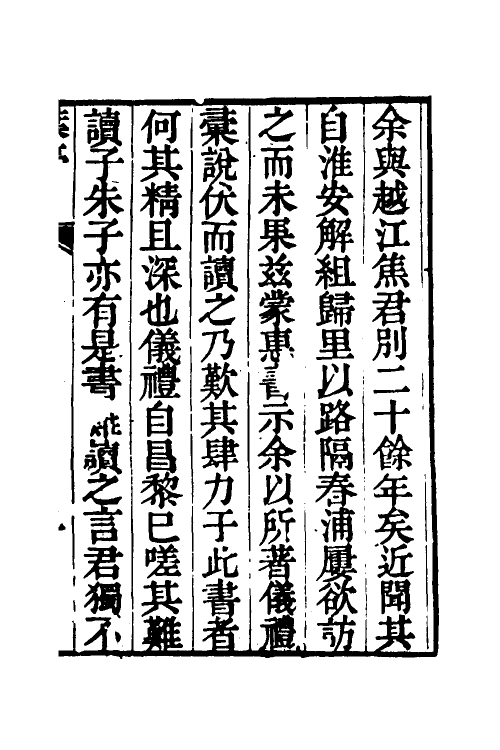 余與越江焦君別二十餘年矣近聞其
自淮安解組歸里以路隔春浦屢欲訪
之而未果兹蒙惠書示余以所著儀禮
彙說伏而讀之乃歎其肆力于此書者
何其精且深也儀禮自昌黎已嗟其難
讀子朱子亦有是書難讀之言君獨不